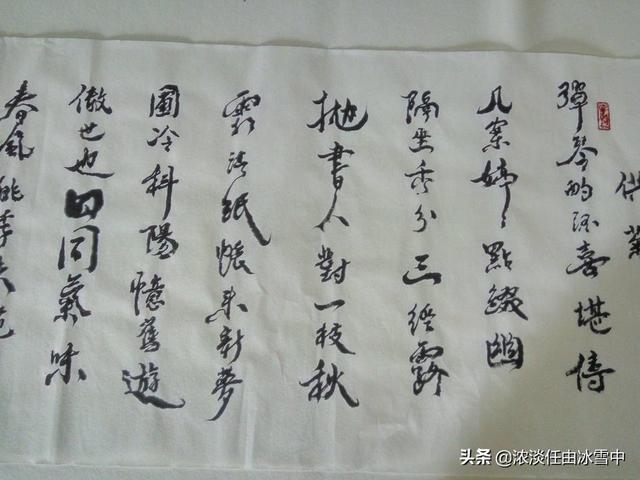 供菊
彈琴酌酒喜堪儔
几案婷〻點綴幽
隔坐香分三徑露
抛書人對一枝秋
霜清紙帳來新夢
圃冷斜陽憶舊遊
傲世也因同氣味
春風桃李未淹
头条 @浓淡任由冰雪中